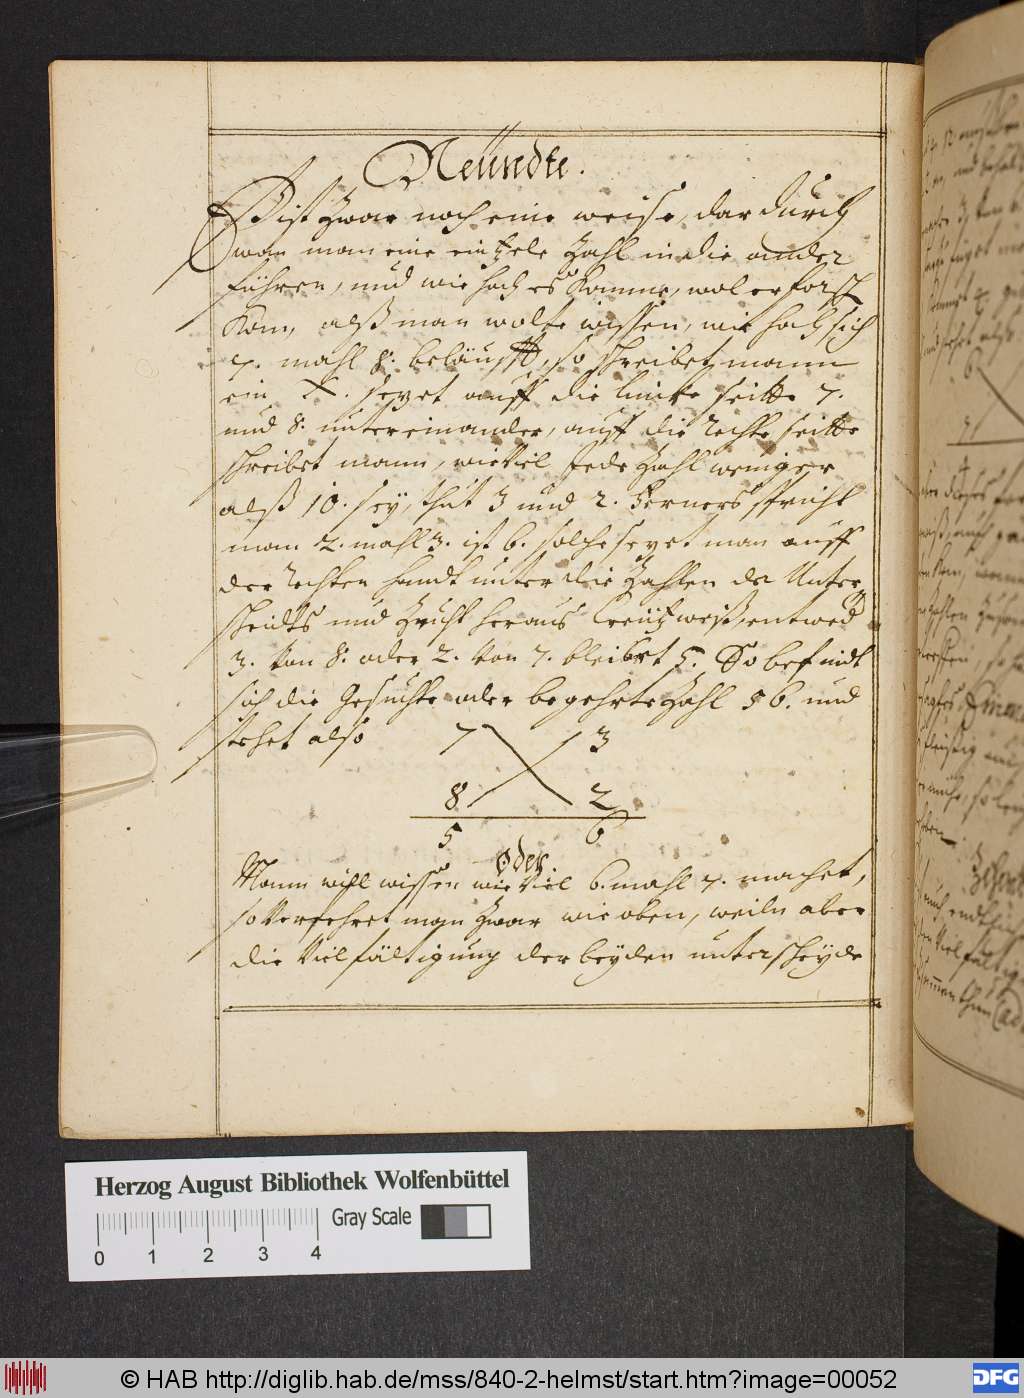 Neündte.
Ist zwar noch eine weise, dardurch
wan man eine eintzele Zahl in die ander
führen, und wie hoch es komme, wol erforsch
kön, alß man wolte wissen, wie hoch sich
7. mahl 8. beläufft, so schreibet mann
ein X. setzet auff die lincke seitte 7.
und 8. untereinander, auff die rechte seitte
schreibet mann, wieviel jede Zahl weniger
alß 10. sey, thut 3 und 2. Ferners spricht
man 2. mahl 3. ist 6. solche setzet man auff
der rechten handt unter die Zahlen der Unter
scheidts und zeucht heraus Creützweiß, entwed
3. von 8. oder 2. von 7. bleibet 5. So befindt
sich die gesuchte oder begehrte Zahl 56. und
stehet also 7 3
8 2
5 6
oder
Mann will wissen wie viel 6. mahl 7. machet,
so verfehret man zwar wie oben, weiln aber
die vielfältigung der beyden unterscheyde
Herzog August Bibliothek Wolfenbüttel
Gray Scale
0 1 2 3 4
© HAB http://diglib.hab.de/mss/840-2-helmst/start.htm?image=00052
DFG